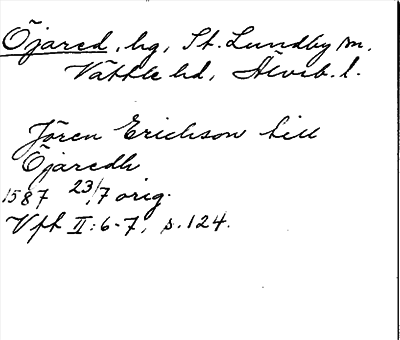 Öjared, hg, St. Lundby sn.
Vättle hd, Älvsb. l.
Jören Erichson till
Öjaredh
1587 23/7 orig.
Vfh II: 6-7, s. 124.